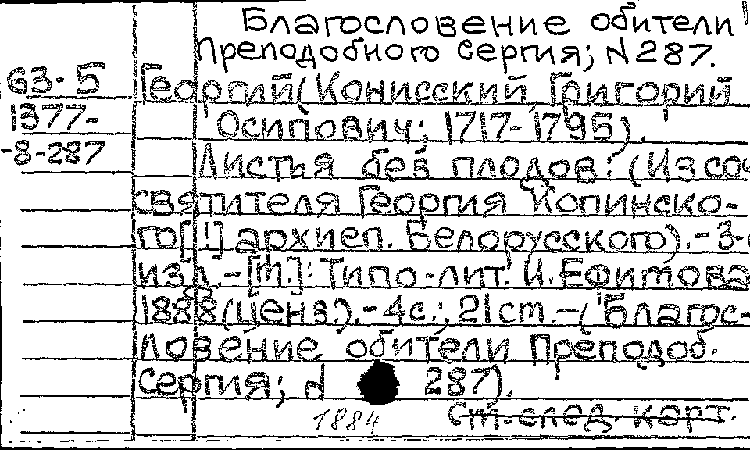 Благословение обители
Преподобного Сергия; N 287.
G3-5 Георгий (Конисский, Григорий
1377- Осипович; 1717-1795).
-8-287 Листья без плодов: (Из соч
святителя Георгия Копинско-
го [!] архиеп. Белорусского).-3-
изд.-[М.]: Типо-лит. И. Ефимова
1888 (ценз.).-4с.; 21см.-("Благос-
ловение обители Преподоб.
Сергия; N 287).
1884 См. след. карт.